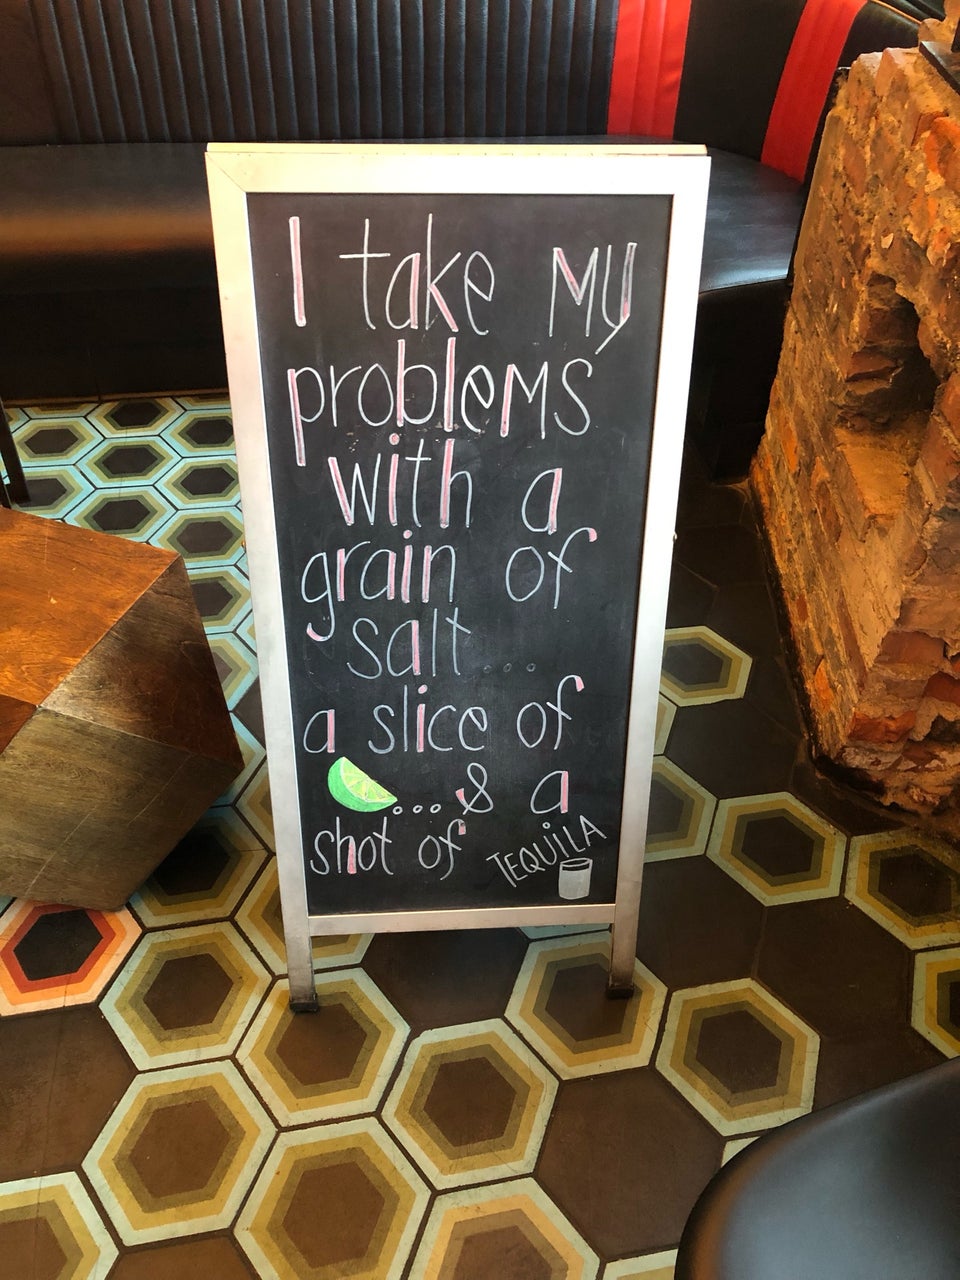 I take My
probleMs
with a
grain of
salt...
a slice of
...& a
shot of TEQUiLA